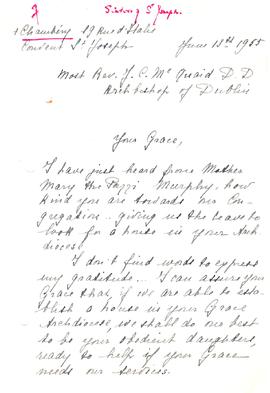 Sisters of St Joseph
+ Chambéry 19 Rue d'Italie
Convent St Joseph June 13th 1955
Most Rev. J. C. Mc Quaid D D
Archbishop of Dublin
Your Grace,
I have just heard from Mother
Mary the Pazzi Murphy, how
kind you are towards our Con-
gregation.. giving us the leave to
look for a house in your Arch
diocese.
I don't find words to express
my gratitude... I can assure your
Grace that, if we are able to esta-
blish a house in your Grace
Archdiocese, we shall do our best
to be your obedient daughters,
ready to help if your Grace
needs our services.